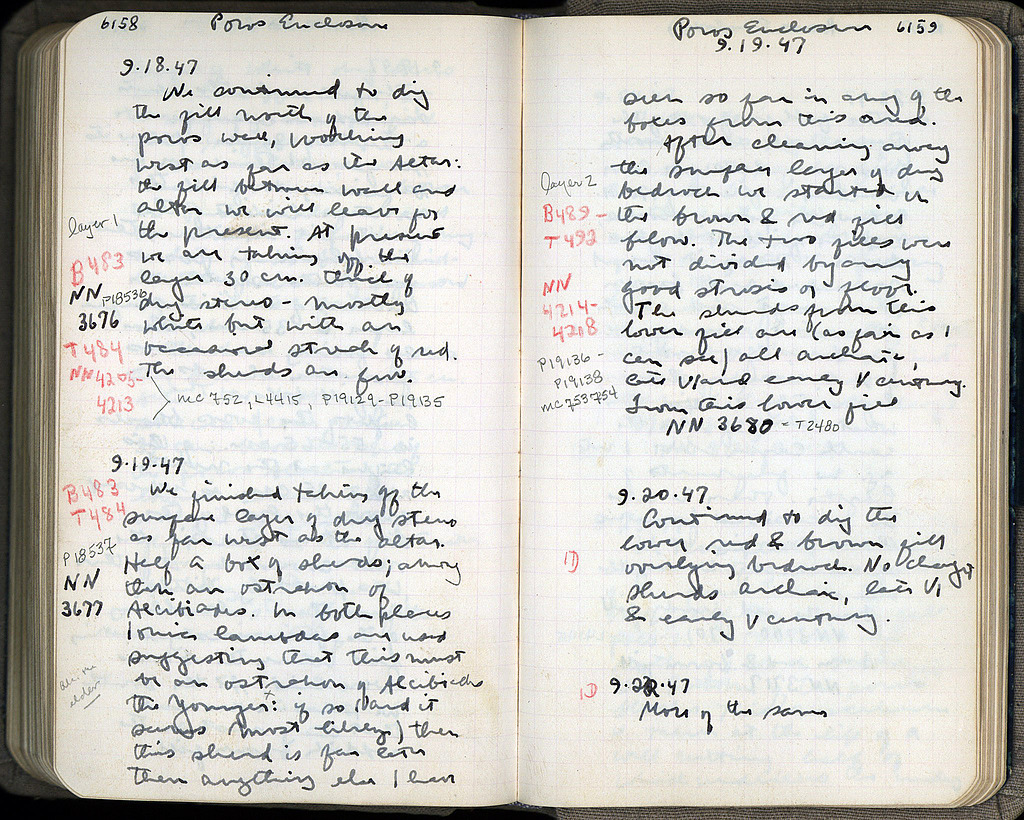 6158 Poros Enclosure
9.18.47
We continued to dig
the fill north of the
poros wall, working
west as far as the Altar:
the fill between wall and
altar we will leave for
the present. At present
we are taking off the
layer 30 cm. thick of
dug stereo - mostly
white but with an
occasional streak of red.
The sherds are few.
MC 752, L4415, P19129-P19135
layer 1
B483
NN P18536
3676
T484
NN4205-
4213
9.19.47
We finished taking off the
surface layer of dug stereo
as far west as the altar.
Half a box of sherds; among
them an ostrakon of
Alcibiades. In both places
Ionic lambdas are used
suggesting that this must
be an ostrakon of Alcibiades
the Younger: if so (and it
seems most likely) then
this sherd is far later
than anything else I have
B483
T484
P18537
NN
3677
older
Poros Enclosure 6159
9.19.47
seen so far in any of the
boxes from this area.
After cleaning away
the surface layer of dug
bedrock we started in
the brown & red fill
below. The two fills were
not divided by any
good strosis or floor.
The sherds from this
lower fill are (as far as I
can see) all archaic,
late VI and early V century.
From this lower fill
NN 3680 - T2480
layer 2
B489 -
T492
NN
4214-
4218
P19136 -
P19138
MC 753-754
9.20.47
Continued to dig the
lower red & brown fill
overlying bedrock. No change
sherds archaic, late VI
& early V century.
1)
9.22.47
More of the same